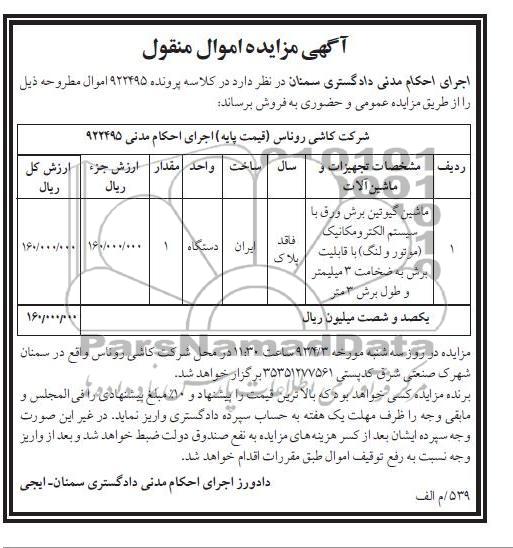 آگهی مزایده اموال منقول
اجرای احکام مدنی دادگستری سمنان در نظر دارد در کلاسه پرونده ۹۲۲۴۹۵ اموال مطروحه ذیل
را از طریق مزایده عمومی و حضوری به فروش برساند:
شرکت کاشی روناس (قیمت پایه) اجرای احکام مدنی ۹۲۲۴۹۵
ردیف مشخصات تجهیزات و ماشین آلات سال ساخت واحد مقدار ارزش جزء ریال ارزش کل ریال
۱ ماشین گیوتین برش ورق با سیستم الکترومکانیک (موتور و لنگ) با قابلیت برش به ضخامت ۳ میلیمتر و طول برش ۳ متر فاقد پلاک ایران دستگاه ۱ ۱۶۰/۰۰۰/۰۰۰ ۱۶۰/۰۰۰/۰۰۰
یکصد و شصت میلیون ریال ۱۶۰/۰۰۰/۰۰۰
مزایده در روز سه شنبه مورخه ۹۳/۴/۳ ساعت ۱۱:۳۰ در محل شرکت کاشی روناس واقع در سمنان
شهرک صنعتی شرق کدپستی ۳۵۳۵۱۲۷۷۵۶۱ برگزار خواهد شد.
برنده مزایده کسی خواهد بود که بالاترین قیمت را پیشنهاد و ۱۰٪ مبلغ پیشنهادی را فی المجلس و
مابقی وجه را ظرف مهلت یک هفته به حساب سپرده دادگستری واریز نماید. در غیر این صورت
وجه سپرده ایشان بعد از کسر هزینه های مزایده به نفع صندوق دولت ضبط خواهد شد و بعد از واریز
وجه نسبت به رفع توقیف اموال طبق مقررات اقدام خواهد شد.
دادورز اجرای احکام مدنی دادگستری سمنان- ایجی
۵۳۹/م الف
ParsNamadData